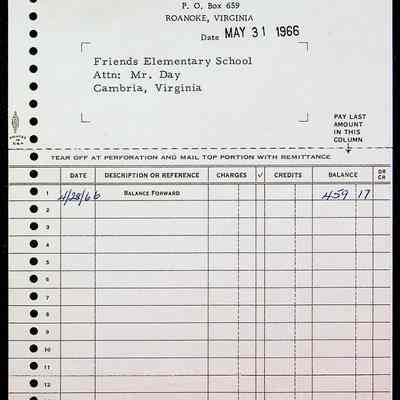 P. O. Box 659
ROANOKE, VIRGINIA
Date MAY 31 1966
Friends Elementary School
Attn: Mr. Day
Cambria, Virginia
PAY LAST
AMOUNT
IN THIS
COLUMN
TEAR OFF AT PERFORATION AND MAIL TOP PORTION WITH REMITTANCE
DATE DESCRIPTION OR REFERENCE CHARGES ✓ CREDITS BALANCE DR CR
1 4/28/66 BALANCE FORWARD 459 17
2
3
4
5
6
7
8
9
10
11
12